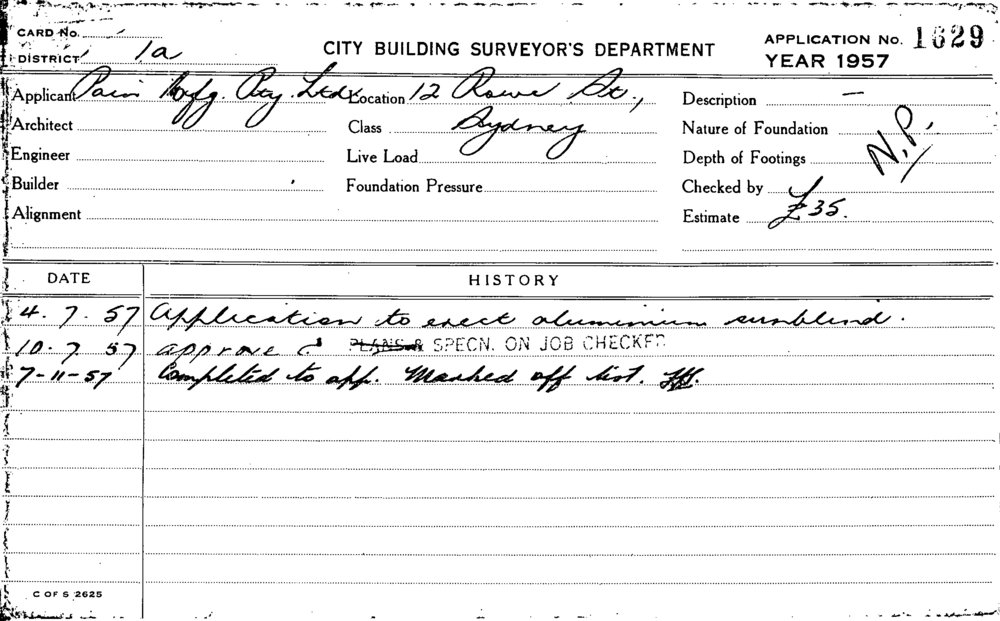 CARD No.
DISTRICT 1a
CITY BUILDING SURVEYOR'S DEPARTMENT
APPLICATION No. 1629
YEAR 1957
Applicant Pain Mfg. Pty. Ltd. Location 12 Rowe St., Description —
Architect Class Sydney Nature of Foundation N.P.
Engineer Live Load Depth of Footings
Builder Foundation Pressure Checked by
Alignment Estimate £35.
DATE HISTORY
4. 7. 57 Application to erect aluminium sunblind.
10. 7. 57 approve PLANS & SPECN. ON JOB CHECKED
7-11-57 Completed to app. Marked off list.
C OF S 2625